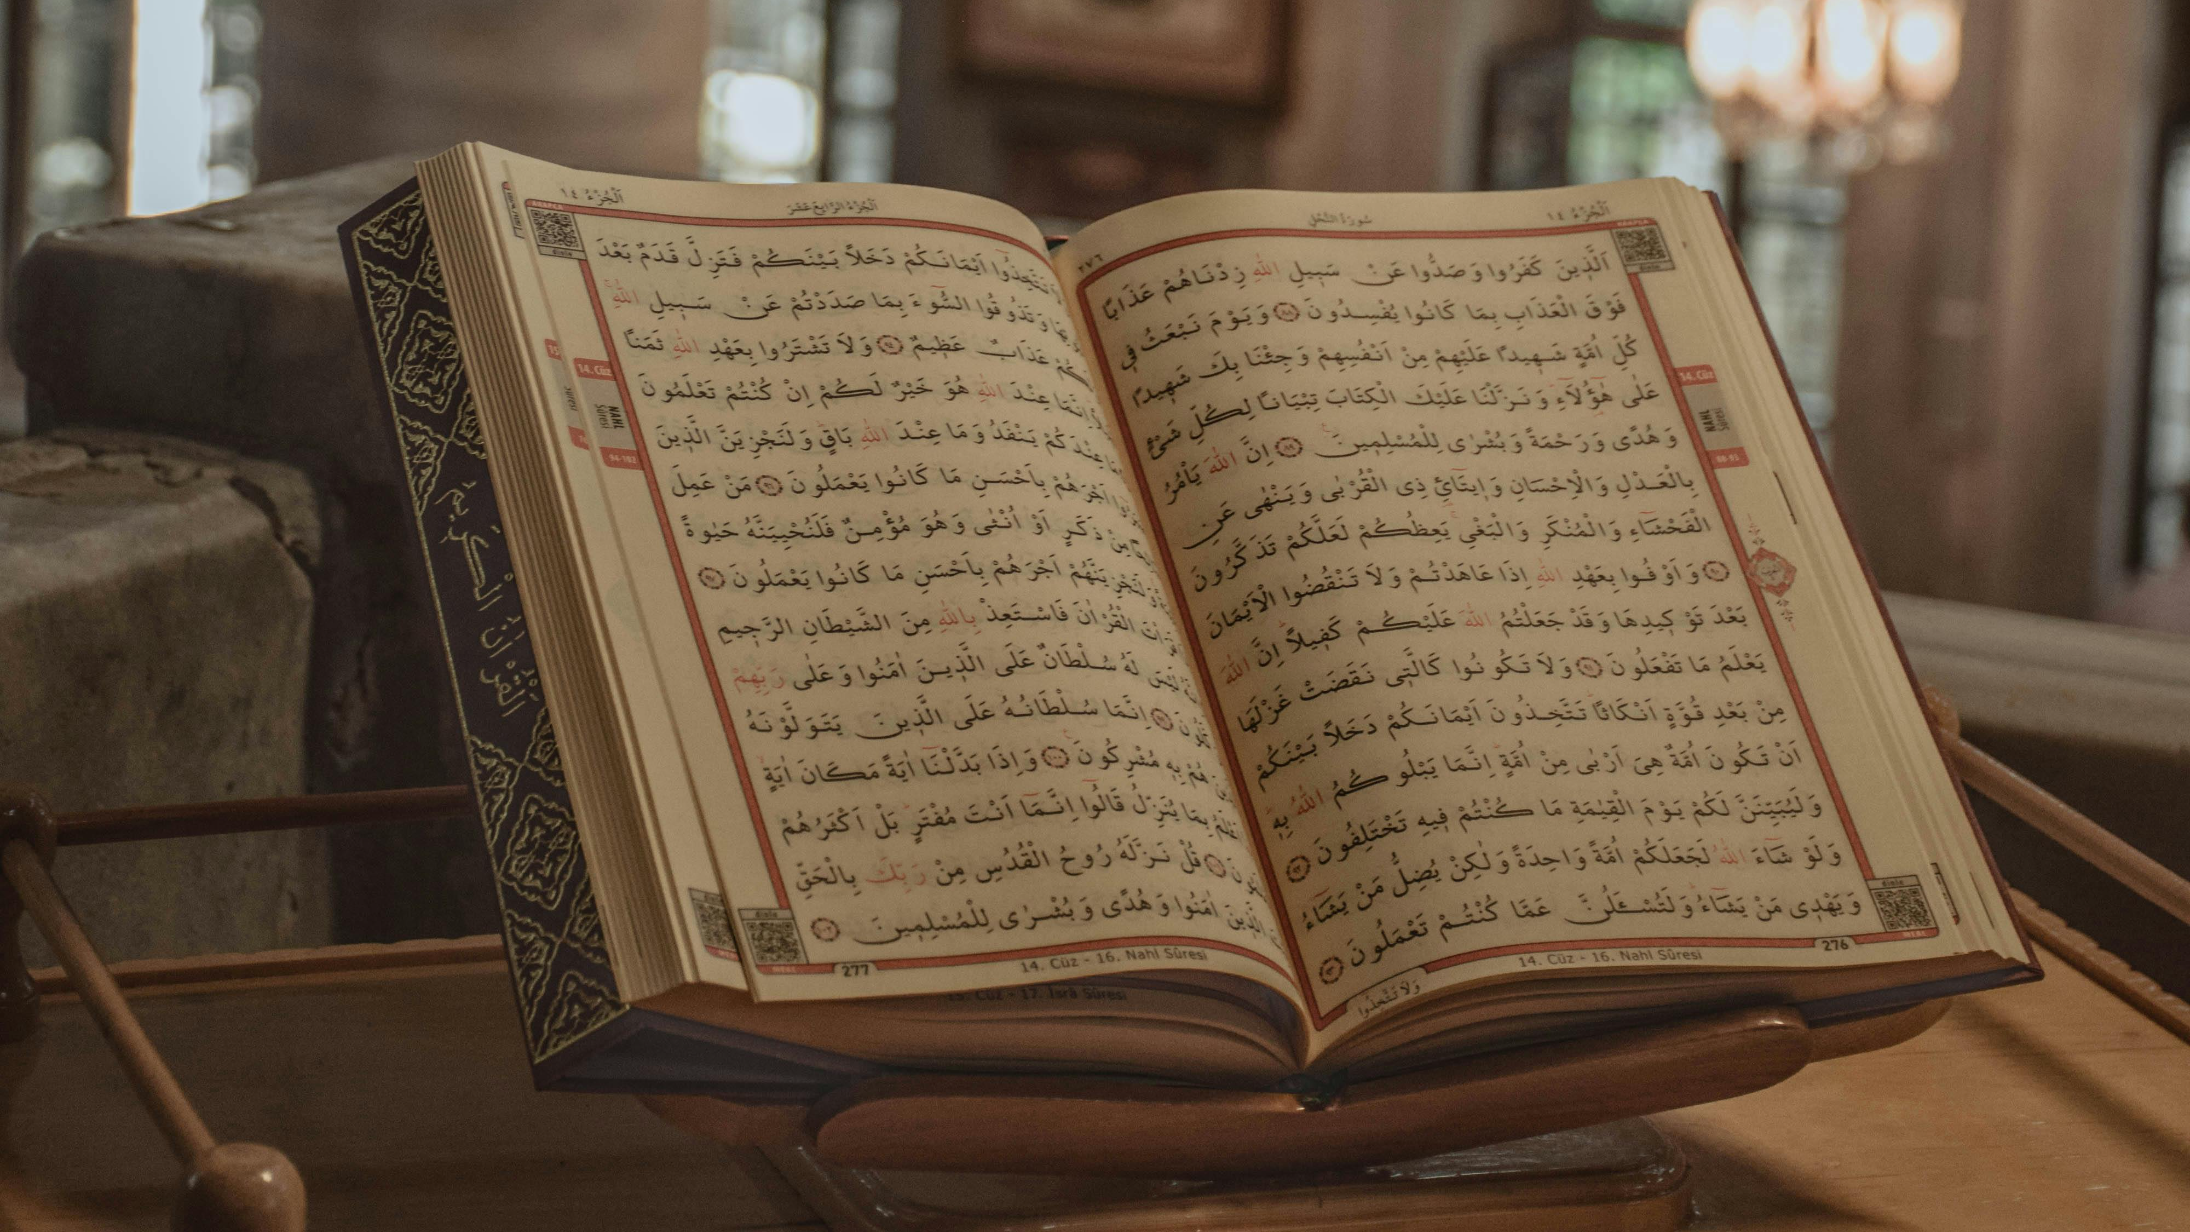 اَلْجُزْءُ ١٤
سُورَةُ النَّحْلِ
٢٧٦
اَلَّذ۪ينَ كَفَرُوا وَصَدُّوا عَنْ سَب۪يلِ اللّٰهِ زِدْنَاهُمْ عَذَابًا
فَوْقَ الْعَذَابِ بِمَا كَانُوا يُفْسِدُونَ ﴿٨٨﴾ وَيَوْمَ نَبْعَثُ ف۪ي
كُلِّ اُمَّةٍ شَه۪يدًا عَلَيْهِمْ مِنْ اَنْفُسِهِمْ وَجِئْنَا بِكَ شَه۪يدًا
عَلٰى هٰٓؤُ۬لَٓاءِ وَنَزَّلْنَا عَلَيْكَ الْكِتَابَ تِبْيَانًا لِكُلِّ شَيْءٍ
وَهُدًى وَرَحْمَةً وَبُشْرٰى لِلْمُسْلِم۪ينَ ﴿٨٩﴾ اِنَّ اللّٰهَ يَأْمُرُ
بِالْعَدْلِ وَالْاِحْسَانِ وَا۪يتَٓائِ ذِي الْقُرْبٰى وَيَنْهٰى عَنِ
الْفَحْشَٓاءِ وَالْمُنْكَرِ وَالْبَغْيِ يَعِظُكُمْ لَعَلَّكُمْ تَذَكَّرُونَ
﴿٩٠﴾ وَاَوْفُوا بِعَهْدِ اللّٰهِ اِذَا عَاهَدْتُمْ وَلَا تَنْقُضُوا الْاَيْمَانَ
بَعْدَ تَوْك۪يدِهَا وَقَدْ جَعَلْتُمُ اللّٰهَ عَلَيْكُمْ كَف۪يلًا اِنَّ اللّٰهَ
يَعْلَمُ مَا تَفْعَلُونَ ﴿٩١﴾ وَلَا تَكُونُوا كَالَّت۪ي نَقَضَتْ غَزْلَهَا
مِنْ بَعْدِ قُوَّةٍ اَنْكَاثًا تَتَّخِذُونَ اَيْمَانَكُمْ دَخَلًا بَيْنَكُمْ
اَنْ تَكُونَ اُمَّةٌ هِيَ اَرْبٰى مِنْ اُمَّةٍ اِنَّمَا يَبْلُوكُمُ اللّٰهُ بِه۪
وَلَيُبَيِّنَنَّ لَكُمْ يَوْمَ الْقِيٰمَةِ مَا كُنْتُمْ ف۪يهِ تَخْتَلِفُونَ ﴿٩٢﴾
وَلَوْ شَٓاءَ اللّٰهُ لَجَعَلَكُمْ اُمَّةً وَاحِدَةً وَلٰكِنْ يُضِلُّ مَنْ يَشَٓاءُ
وَيَهْد۪ي مَنْ يَشَٓاءُ وَلَتُسْـَٔلُنَّ عَمَّا كُنْتُمْ تَعْمَلُونَ ﴿٩٣﴾
وَلَا تَتَّخِذُوا
14. Cüz - 16. Nahl Sûresi
276
14. Cüz
NAHL
Sûresi
88-93
اَلْجُزْءُ الرَّابِعُ عَشَرَ
اَلْجُزْءُ ١٤
تَتَّخِذُٓوا اَيْمَانَكُمْ دَخَلًا بَيْنَكُمْ فَتَزِلَّ قَدَمٌ بَعْدَ
وَتَذُوقُوا السُّٓوءَ بِمَا صَدَدْتُمْ عَنْ سَب۪يلِ اللّٰهِ
عَذَابٌ عَظ۪يمٌ ﴿٩٤﴾ وَلَا تَشْتَرُوا بِعَهْدِ اللّٰهِ ثَمَنًا
اِنَّمَا عِنْدَ اللّٰهِ هُوَ خَيْرٌ لَكُمْ اِنْ كُنْتُمْ تَعْلَمُونَ
عِنْدَكُمْ يَنْفَدُ وَمَا عِنْدَ اللّٰهِ بَاقٍ وَلَنَجْزِيَنَّ الَّذ۪ينَ
اَجْرَهُمْ بِاَحْسَنِ مَا كَانُوا يَعْمَلُونَ ﴿٩٦﴾ مَنْ عَمِلَ
مِنْ ذَكَرٍ اَوْ اُنْثٰى وَهُوَ مُؤْمِنٌ فَلَنُحْيِيَنَّهُ حَيٰوةً
اَجْرَهُمْ بِاَحْسَنِ مَا كَانُوا يَعْمَلُونَ ﴿٩٧﴾
الْقُرْاٰنَ فَاسْتَعِذْ بِاللّٰهِ مِنَ الشَّيْطَانِ الرَّج۪يمِ
لَيْسَ لَهُ سُلْطَانٌ عَلَى الَّذ۪ينَ اٰمَنُوا وَعَلٰى رَبِّهِمْ
اِنَّمَا سُلْطَانُهُ عَلَى الَّذ۪ينَ يَتَوَلَّوْنَهُ
هُمْ بِه۪ مُشْرِكُونَ ﴿١٠٠﴾ وَاِذَا بَدَّلْنَٓا اٰيَةً مَكَانَ اٰيَةٍ
بِمَا يُنَزِّلُ قَالُٓوا اِنَّمَٓا اَنْتَ مُفْتَرٍ بَلْ اَكْثَرُهُمْ
قُلْ نَزَّلَهُ رُوحُ الْقُدُسِ مِنْ رَبِّكَ بِالْحَقِّ
اٰمَنُوا وَهُدًى وَبُشْرٰى لِلْمُسْلِم۪ينَ ﴿١٠٢﴾
14. Cüz - 16. Nahl Sûresi
277
14. Cüz
NAHL
Sûresi
94-102
15. Cüz - 17. İsrâ Sûresi
اَلْقُرْاٰنُ الْكَر۪يمُ